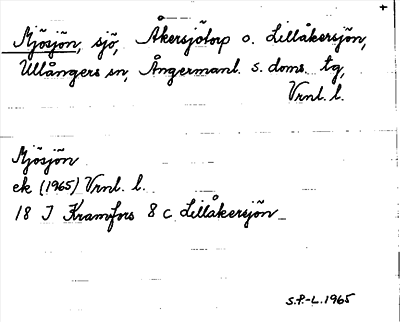 +
Mjösjön, sjö, Åkersjötorp o. Lillåkersjön,
Ullångers sn, Ångermanl. s. doms. tg,
Vrnl. l.
Mjösjön
ek (1965) Vrnl. l.
18 I Kramfors 8 c Lillåkersjön
S.P.-L. 1965